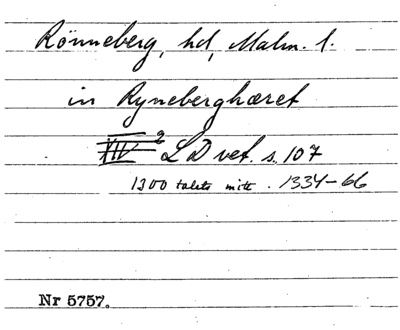 Rönneberg, hd, Malm. l.
in Ryneberghæret
LD vet. s. 107
1300 talets mitt. 1334–66
Nr 5757.